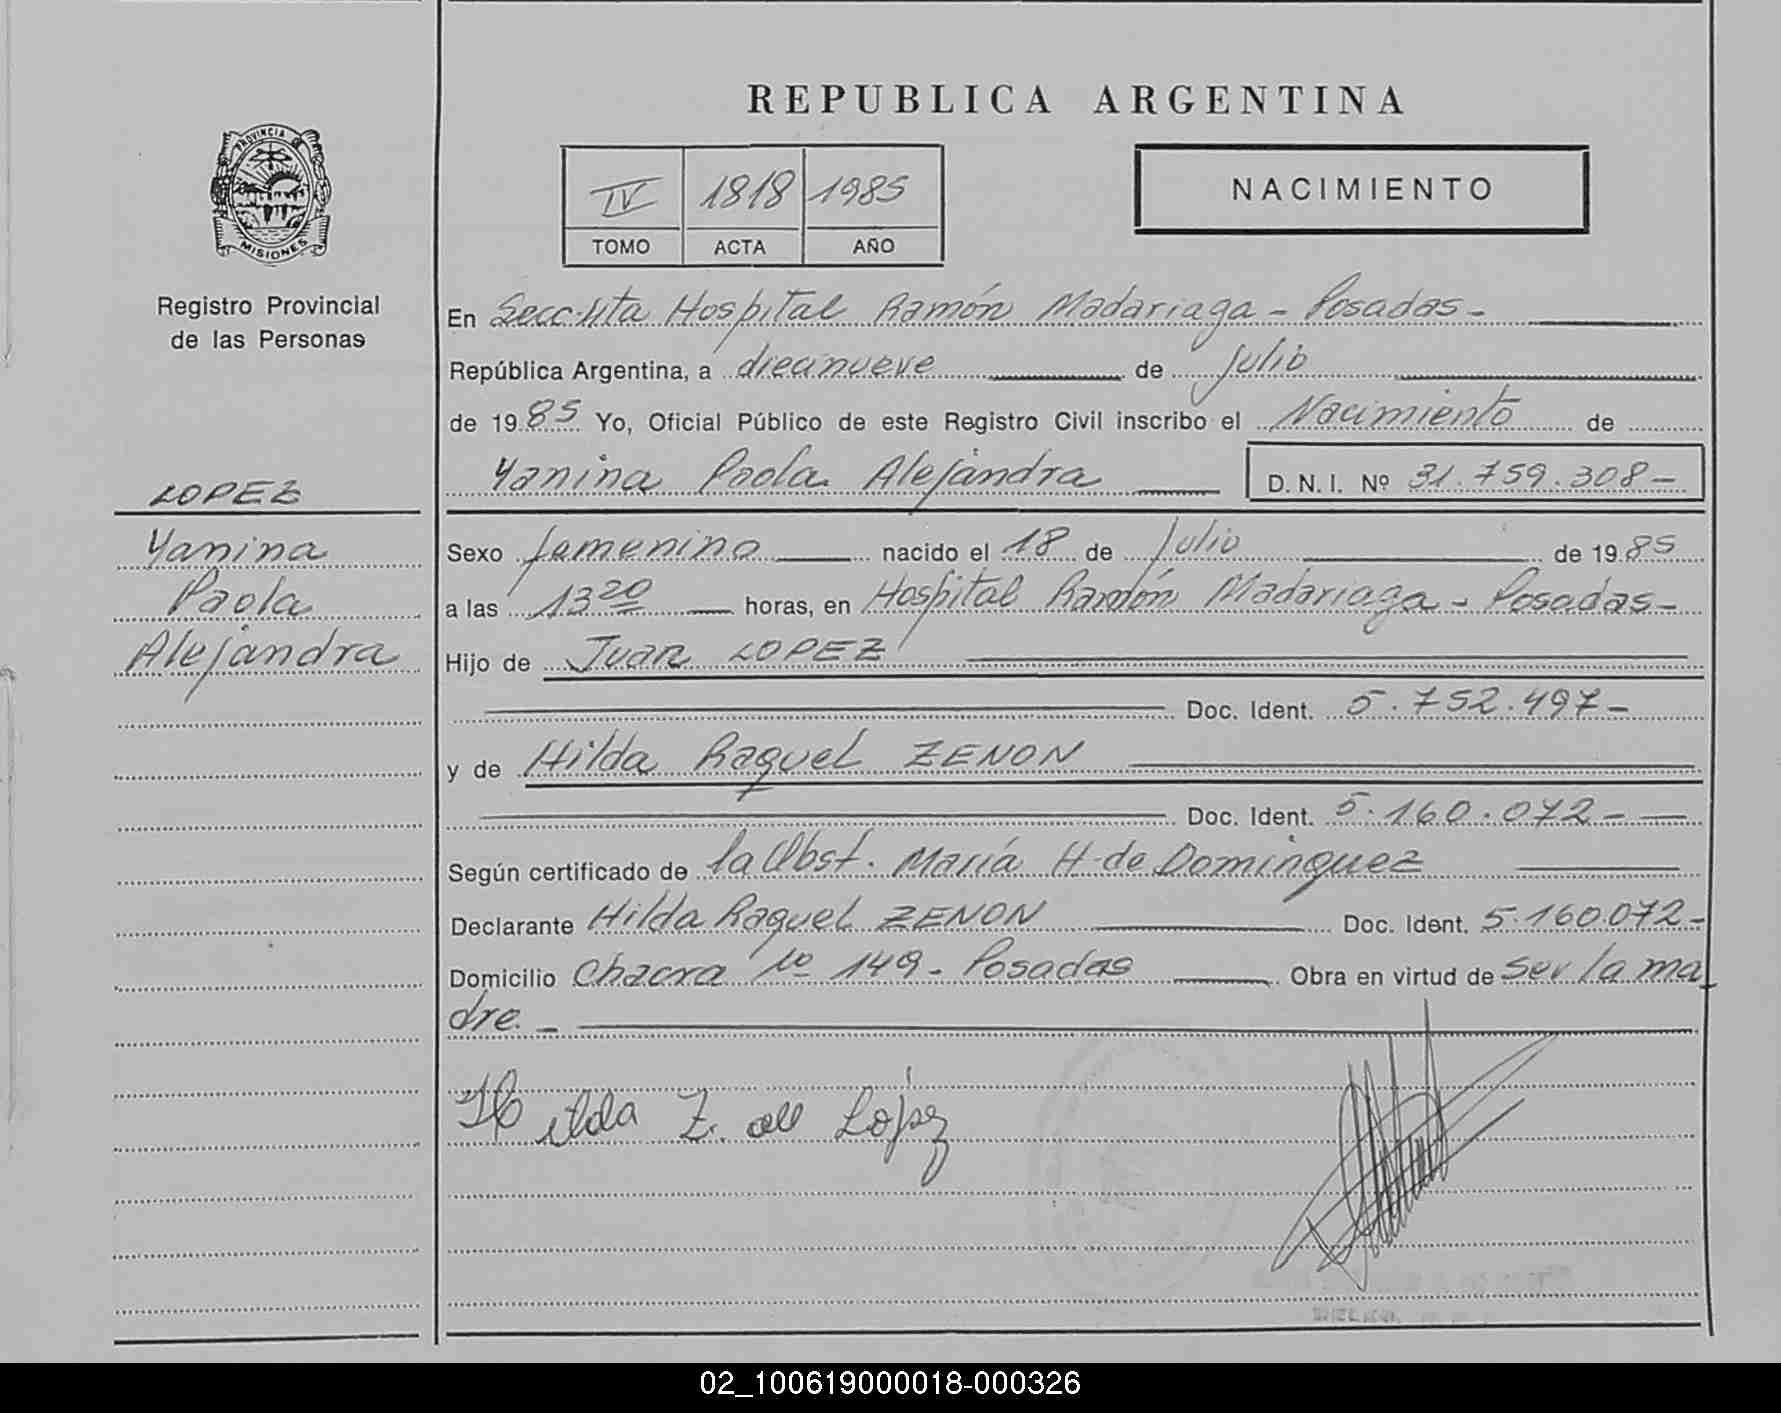 REPUBLICA ARGENTINA
PROVINCIA DE
MISIONES
Registro Provincial
de las Personas
IV 1818 1985
TOMO ACTA AÑO
NACIMIENTO
LOPEZ
Yanina
Paola
Alejandra
En Secc. 4ta Hospital Ramón Madariaga - Posadas -
República Argentina, a diecinueve de Julio
de 1985 Yo, Oficial Público de este Registro Civil inscribo el Nacimiento de
Yanina Paola Alejandra D. N. I. Nº 31.759.308-
Sexo femenino nacido el 18 de Julio de 1985
a las 13 20 horas, en Hospital Ramón Madariaga - Posadas -
Hijo de Juan LOPEZ
Doc. Ident. 5.752.497-
y de Hilda Raquel ZENON
Doc. Ident. 5.160.072-
Según certificado de la Obst. María H. de Dominguez
Declarante Hilda Raquel ZENON Doc. Ident. 5.160.072-
Domicilio Chacra Nº 149 - Posadas Obra en virtud de ser la ma
dre. -
Hilda Z. de López
02_100619000018-000326